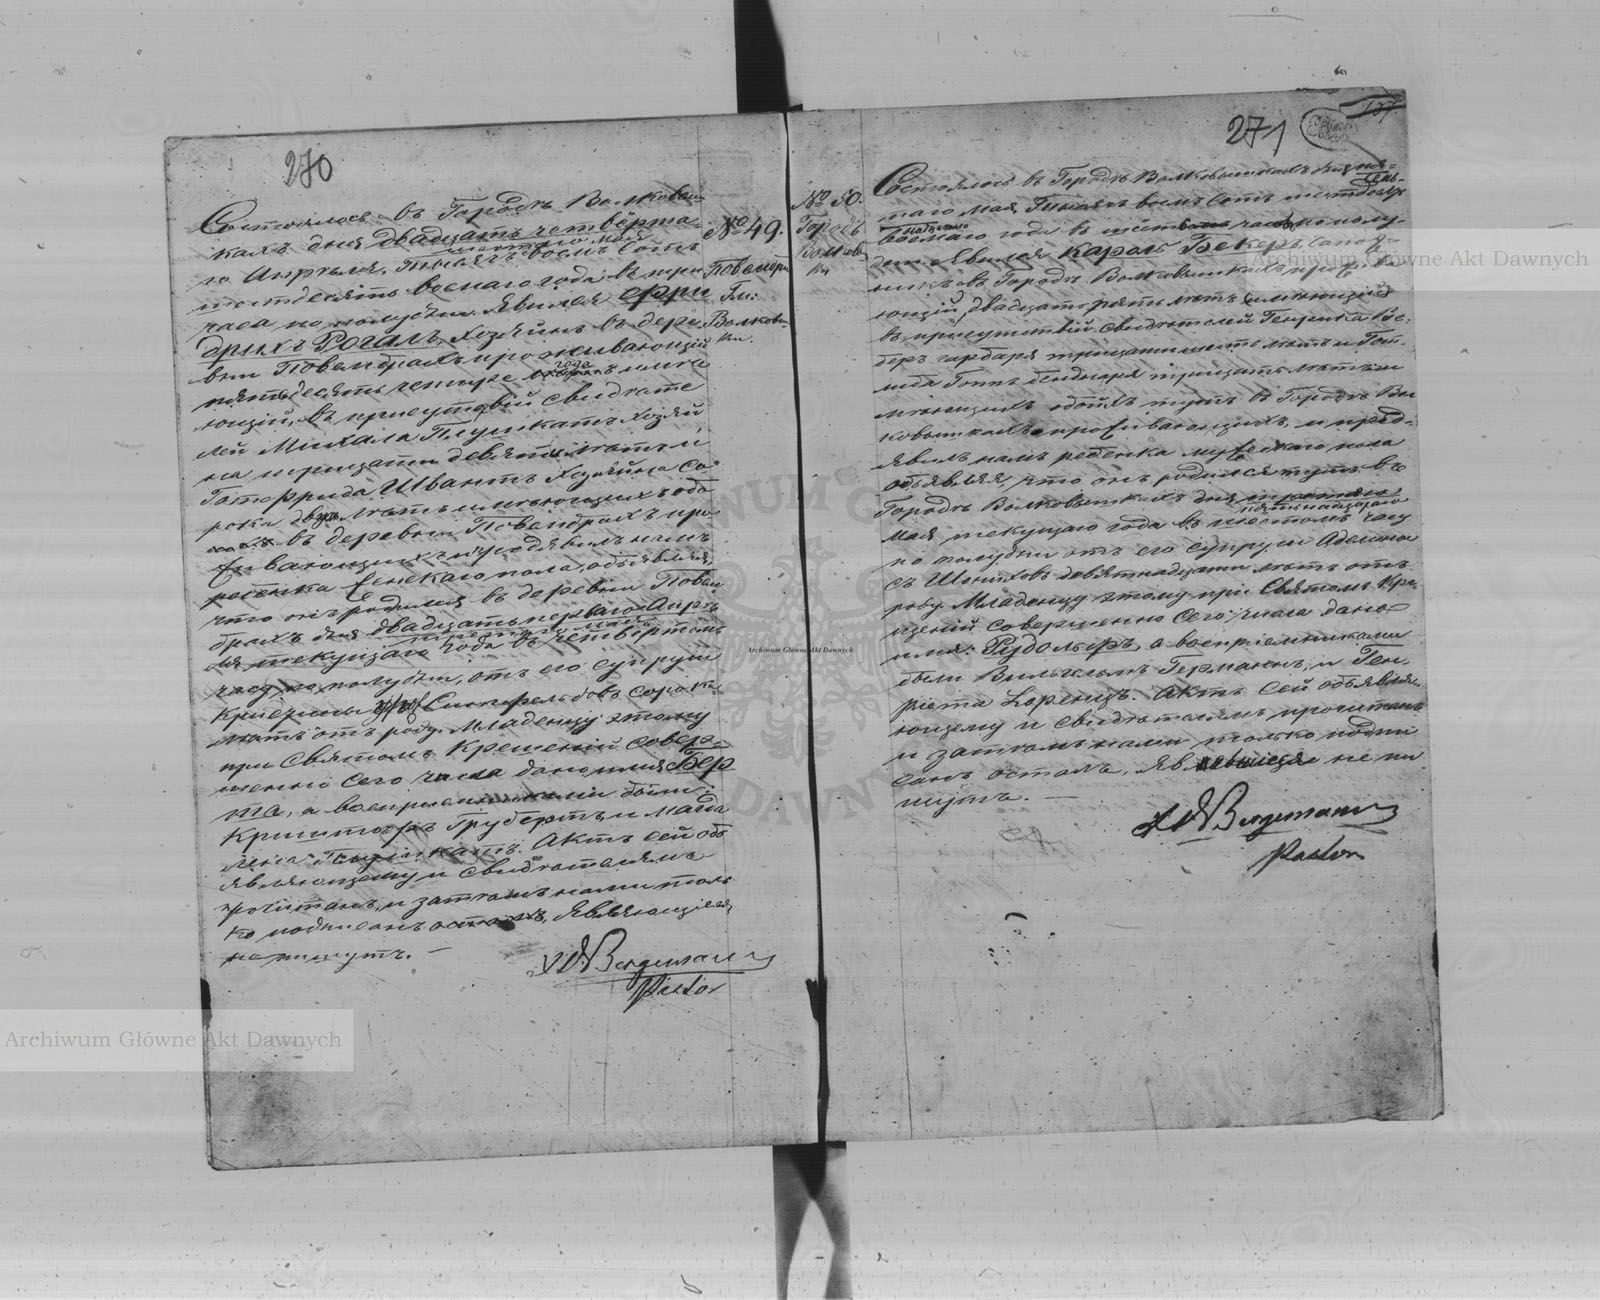 270
Состоялось въ Городѣ Волковыш
кахъ дня двадцать четвёрта-
го Апрѣля, Тысяча восемь сотъ
шестдесять восмаго года въ три
часа по полудни. Явился Фри
дрихъ Рогалъ, Хозяинъ въ дере
вни Повембрахъ проживающій
пятьдесять четыре года имѣ
ющій, въ присутствіи свидѣте
лей Михала Плушкатъ Хозяи
на тридцати девяти лѣтъ и
Готфрида Швантъ Хозяина со-
рока два лѣтъ имѣющихъ обо
въ деревни Повембрахъ про-
живающихъ и предъявилъ намъ
ребенка женскаго пола, объявляя,
что онъ родился въ деревни Повем
брахъ дня двадцать перваго Апрѣ
ля текущаго года въ четвёртомъ
часу по полудни, отъ его супруги
Кристины сорокъ
лѣтъ отъ роду. Младенцу этому
при Святомъ Крещеніи совер-
шенно сего числа дано имя Бер
та, а воспріемниками были:
Криштофъ Грубертъ и Магда
лена. Актъ сей объ
являющему и Свидѣтелямъ
прочитанъ, и затѣмъ нами толь
ко подписанъ осталъ, Являющіеся
не пишутъ. —
Bergemann
Pastor
№ 49.
Повембри
Гм:
Волковы
ки.
271
137
№ 50.
Городъ
Волковы
ки
Состоялось въ Городѣ Волковышкахъ дня пя-
таго мая, Тысяча восемь сотъ шестдесять
восмаго года въ часы по полу-
дни Явился Кароль Бекеръ, сапож-
никъ въ Городѣ Волковышкахъ прожива
ющій, двадцать пять лѣтъ имѣющій
въ присутствіи свидѣтелей Генрика Ве-
беръ гарбаря тридцати шести лѣтъ и Гот-
либа Гоппъ бенднаря тридцать лѣтъ и
мѣющихъ обоихъ тутъ въ Городѣ Вол
ковышкахъ проживающихъ, и предъ-
явилъ намъ ребенка мужескаго пола
объявляя, что онъ родился тутъ въ
Городѣ Волковышкахъ дня третяго
мая текущаго года въ шестомъ часу
по полудни отъ его супруги Аделины
съ девятнадцати лѣтъ отъ
роду. Младенцу этому при Святомъ Кре-
щеніи совершенно Сего числа дано
имя: Рудольфъ, а воспріемниками
были Вильгельмъ Германнъ, и Ген-
ріета Лоренцъ. Актъ Сей объявля-
ющему и Свидѣтелямъ прочитанъ
и затѣмъ нами только подпи
санъ осталъ, не пи
шутъ. —
Bergemann
Pastor
Archiwum Główne Akt Dawnych
Archiwum Główne Akt Dawnych
Archiwum Główne Akt Dawnych